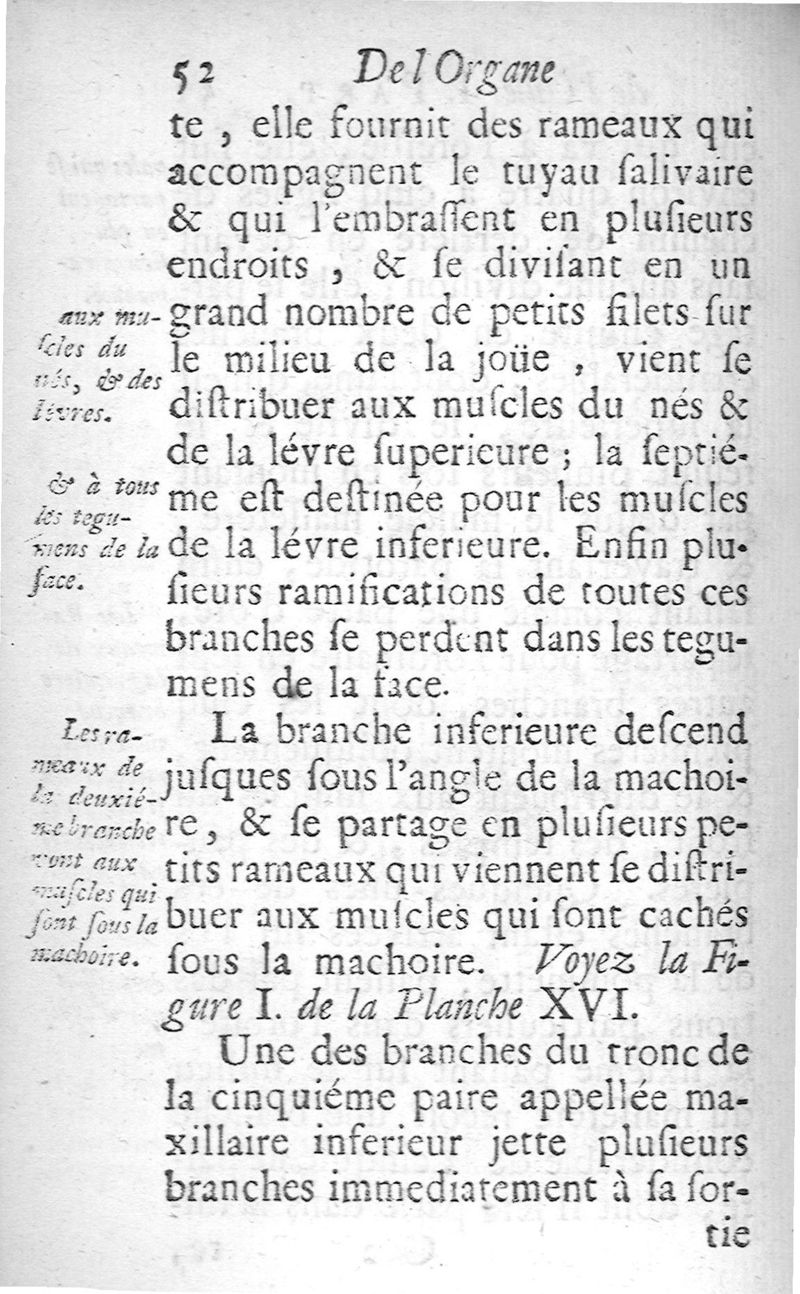 52 De l Organe
te , elle fournit des rameaux qui
accompagnent le tuyau ſalivaire
& qui l'embraſſent en pluſieurs
endroits , & ſe diviſant en un
grand nombre de petits filets ſur
le milieu de la joüe , vient ſe
diſtribuer aux muſcles du nés &
de la lévre ſuperieure ; la ſeptié-
me eſt deſtinée pour les muſcles
de la lévre inferieure. Enfin plu-
ſieurs ramifications de toutes ces
branches ſe perdent dans les tegu-
mens de la face.
aux mu-
ſcles du
nés, & des
lévres.
& à tous
les tegu-
mens de la
face.
La branche inferieure deſcend
juſques ſous l'angle de la machoi-
re, & ſe partage en pluſieurs pe-
tits rameaux qui viennent ſe diſtri-
buer aux muſcles qui ſont cachés
ſous la machoire. Voyez la Fi-
gure I. de la Planche XVI.
Les ra-
meaux de
la deuxié-
me branche
vont aux
muſcles qui
ſont ſous la
machoire.
Une des branches du tronc de
la cinquiéme paire appellée ma-
xillaire inferieur jette pluſieurs
branches immediatement à ſa ſor-
tie